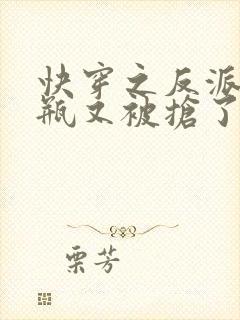 快穿之反派
瓶又被搶了
栗芳